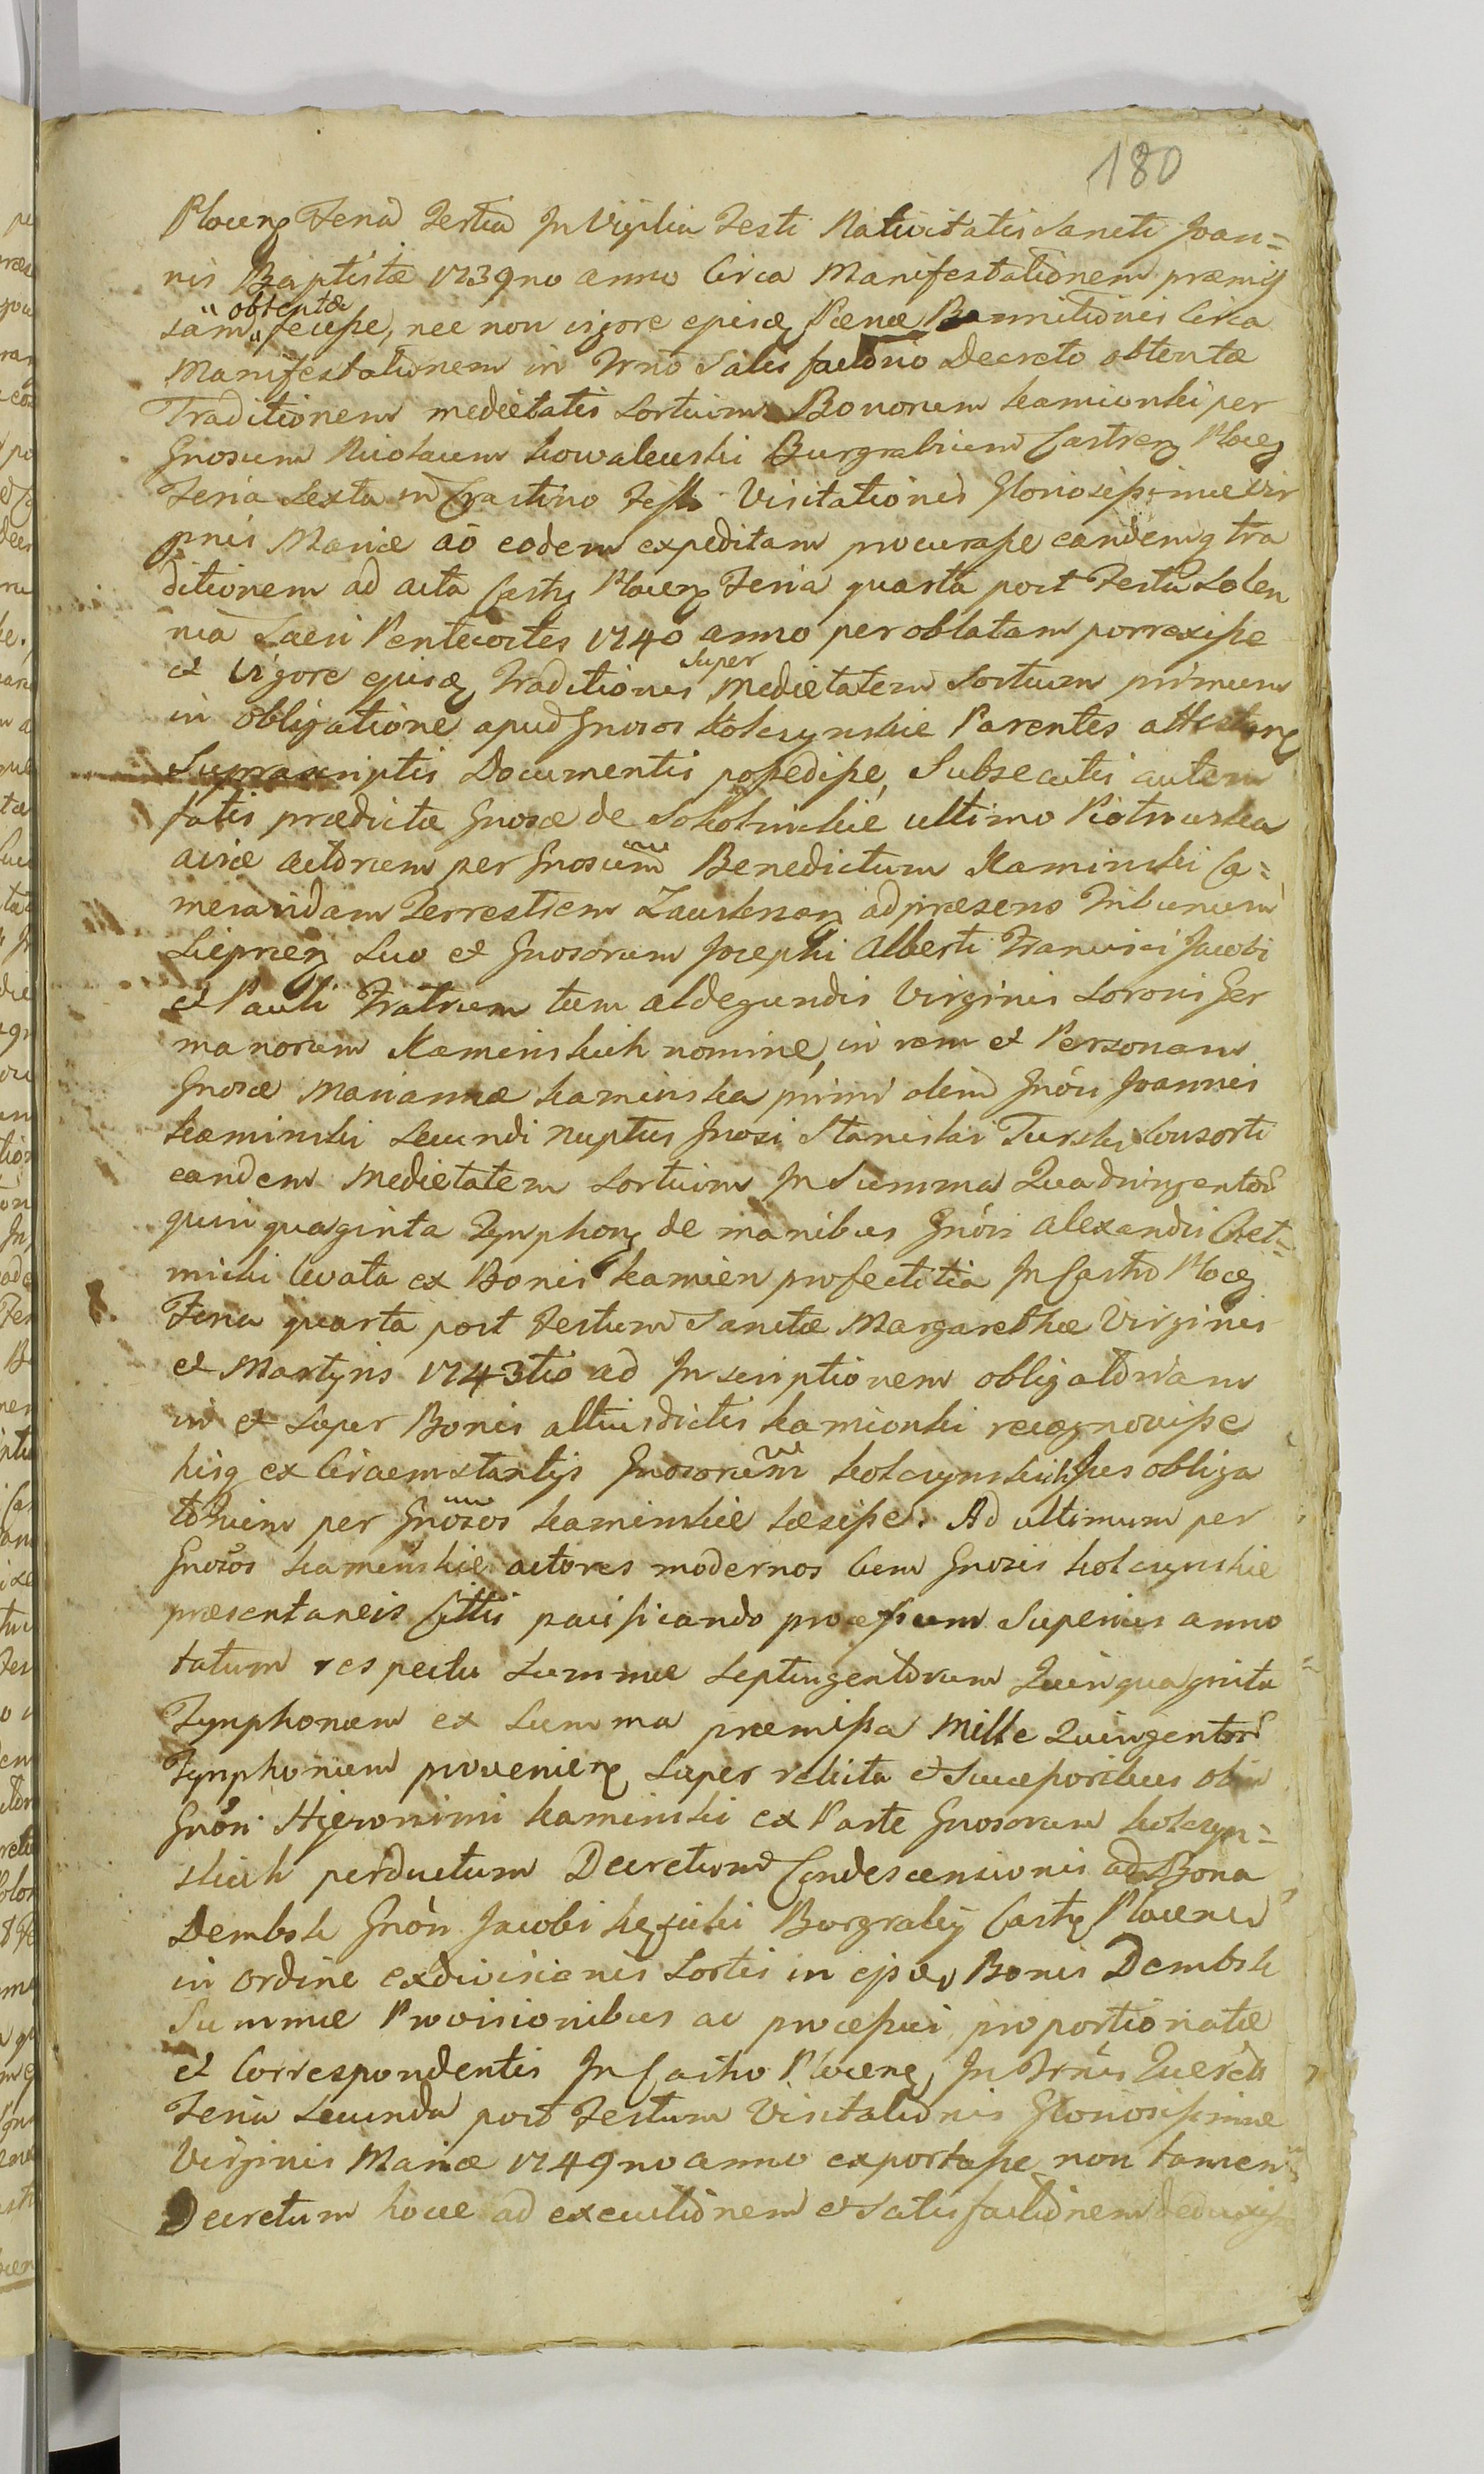 180
Plocen Feria Tertia In Vigilia Festi Nativitatis Sancti Joan=
nis Baptistæ 1739no anno Circa Manifestationem præmis
sam obtentæ fecisse, nec non vigore ejusq Pænæ Bannitionis Circa
Manifestationem in Trno Satisfactorio Decreto obtentæ
Traditionem medietatis Sortium Bonorum Kamionki per
Gnosum Nicolaum Kowalewski Burgrabium Castren Ploceñ
Feria Sexta in Crastino Festi Visitationis Gloriosissimæ Vir
ginis Mariæ aõ eodem expeditam procurasse eandemq tra
ditionem ad acta Castri Plocen Feria quarta post Festa Solen
nia Sacri Pentecostes 1740 anno per oblatam porrexisse
et Vigore ejusq Traditionis super Medietatem Sortium primum
in obligatione apud Gnosos Kolczynskie Parentes
Suprascriptis Documentis possedisse, Subsecutis autem
fatis prædictæ Gnosæ de ultimo
aviæ actorum per Gnosum Benedictum Kaminski Ca=
meraridam Terrestrem ad præsens Tribunum
Suo et Gnosorum Josephi Alberti Francisci Jacobi
et Pauli Fratrum tum Aldegundis Virginis Sororis Ger
manorum Kaminskich nomine, in rem et Personam
Gnosæ Mariannæ Kaminska primi olim Gnõsi Joannis
Kaminski Secundi nuptus Gnosi Stanislai Turski Consorti
eandem Medietatem Sortium In Summa Quadringentor
quinquaginta Tymphon de manibus Gnõsi Alexandri Chet=
micki levata ex Bonis Kamien profectitia In Castro Ploceñ
Feria quarta post Festum Sanctæ Margarethæ Virginis
et Martyris 1743tio ad Inscriptionem obligatoriam
in et Super Bonis altius dictis Kamionki recognovisse
hisq ex Circumstantijs Gnosorum Kolczynskich Jus obliga
torium per Gnosos Kaminskie læsisse. Ad ultimum per
Gnosos Kaminskie actores modernos cum Gnosis Kolczynskie
præsentaneis Cittis pacificando processum Superius anno
tatum respectu Summæ Septingentorum Quinquaginta
Tymphonum ex Summa præmissa Mille Quingentor
Tymphonum provenien super relicta et Successoribus olim
Gnõsi Hieronimi Kaminski ex Parte Gnosorum Kolczyn=
skich perductum Decretum Condescensionis ad Bona
Dembsk Gnõsi Jacobi Burgrabij Castri Plocens
in ordine exdivisionis Sortis in ejsdem Bonis Dembsk
Summæ Provisionibus ac processui proportionatæ
et Correspondentis In Castro Plocen, In Trnis Querel
Feria Secunda post Festum Visitationis Gloriosissimæ
Virginis Mariæ 1749no anno exportasse non tamen
Decretum hocce ad executionem et Satisfactionem deduxisse